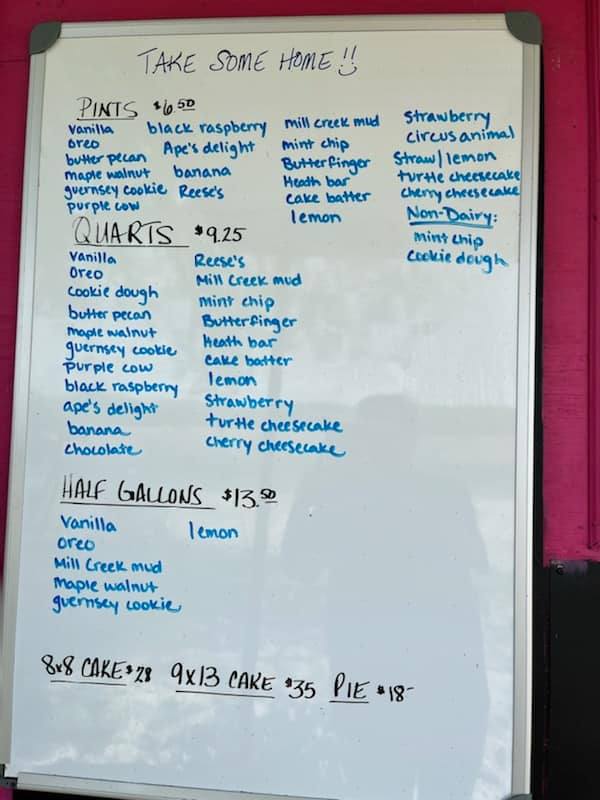 TAKE SOME HOME!!
PINTS $6.50
vanilla
oreo
butter pecan
maple walnut
guernsey cookie
purple cow
black raspberry
Ape's delight
banana
Reese's
mill creek mud
mint chip
Butterfinger
Heath bar
cake batter
lemon
Strawberry
circus animal
Straw/lemon
turtle cheesecake
cherry cheesecake
Non-Dairy:
mint chip
cookie dough
QUARTS $9.25
vanilla
Oreo
cookie dough
butter pecan
maple walnut
guernsey cookie
purple cow
black raspberry
ape's delight
banana
chocolate
Reese's
Mill Creek mud
mint chip
Butterfinger
Heath bar
cake batter
lemon
Strawberry
turtle cheesecake
cherry cheesecake
HALF GALLONS $13.50
Vanilla
oreo
Mill Creek mud
Maple walnut
guernsey cookie
lemon
8x8 CAKE $28 9x13 CAKE $35 PIE $18-